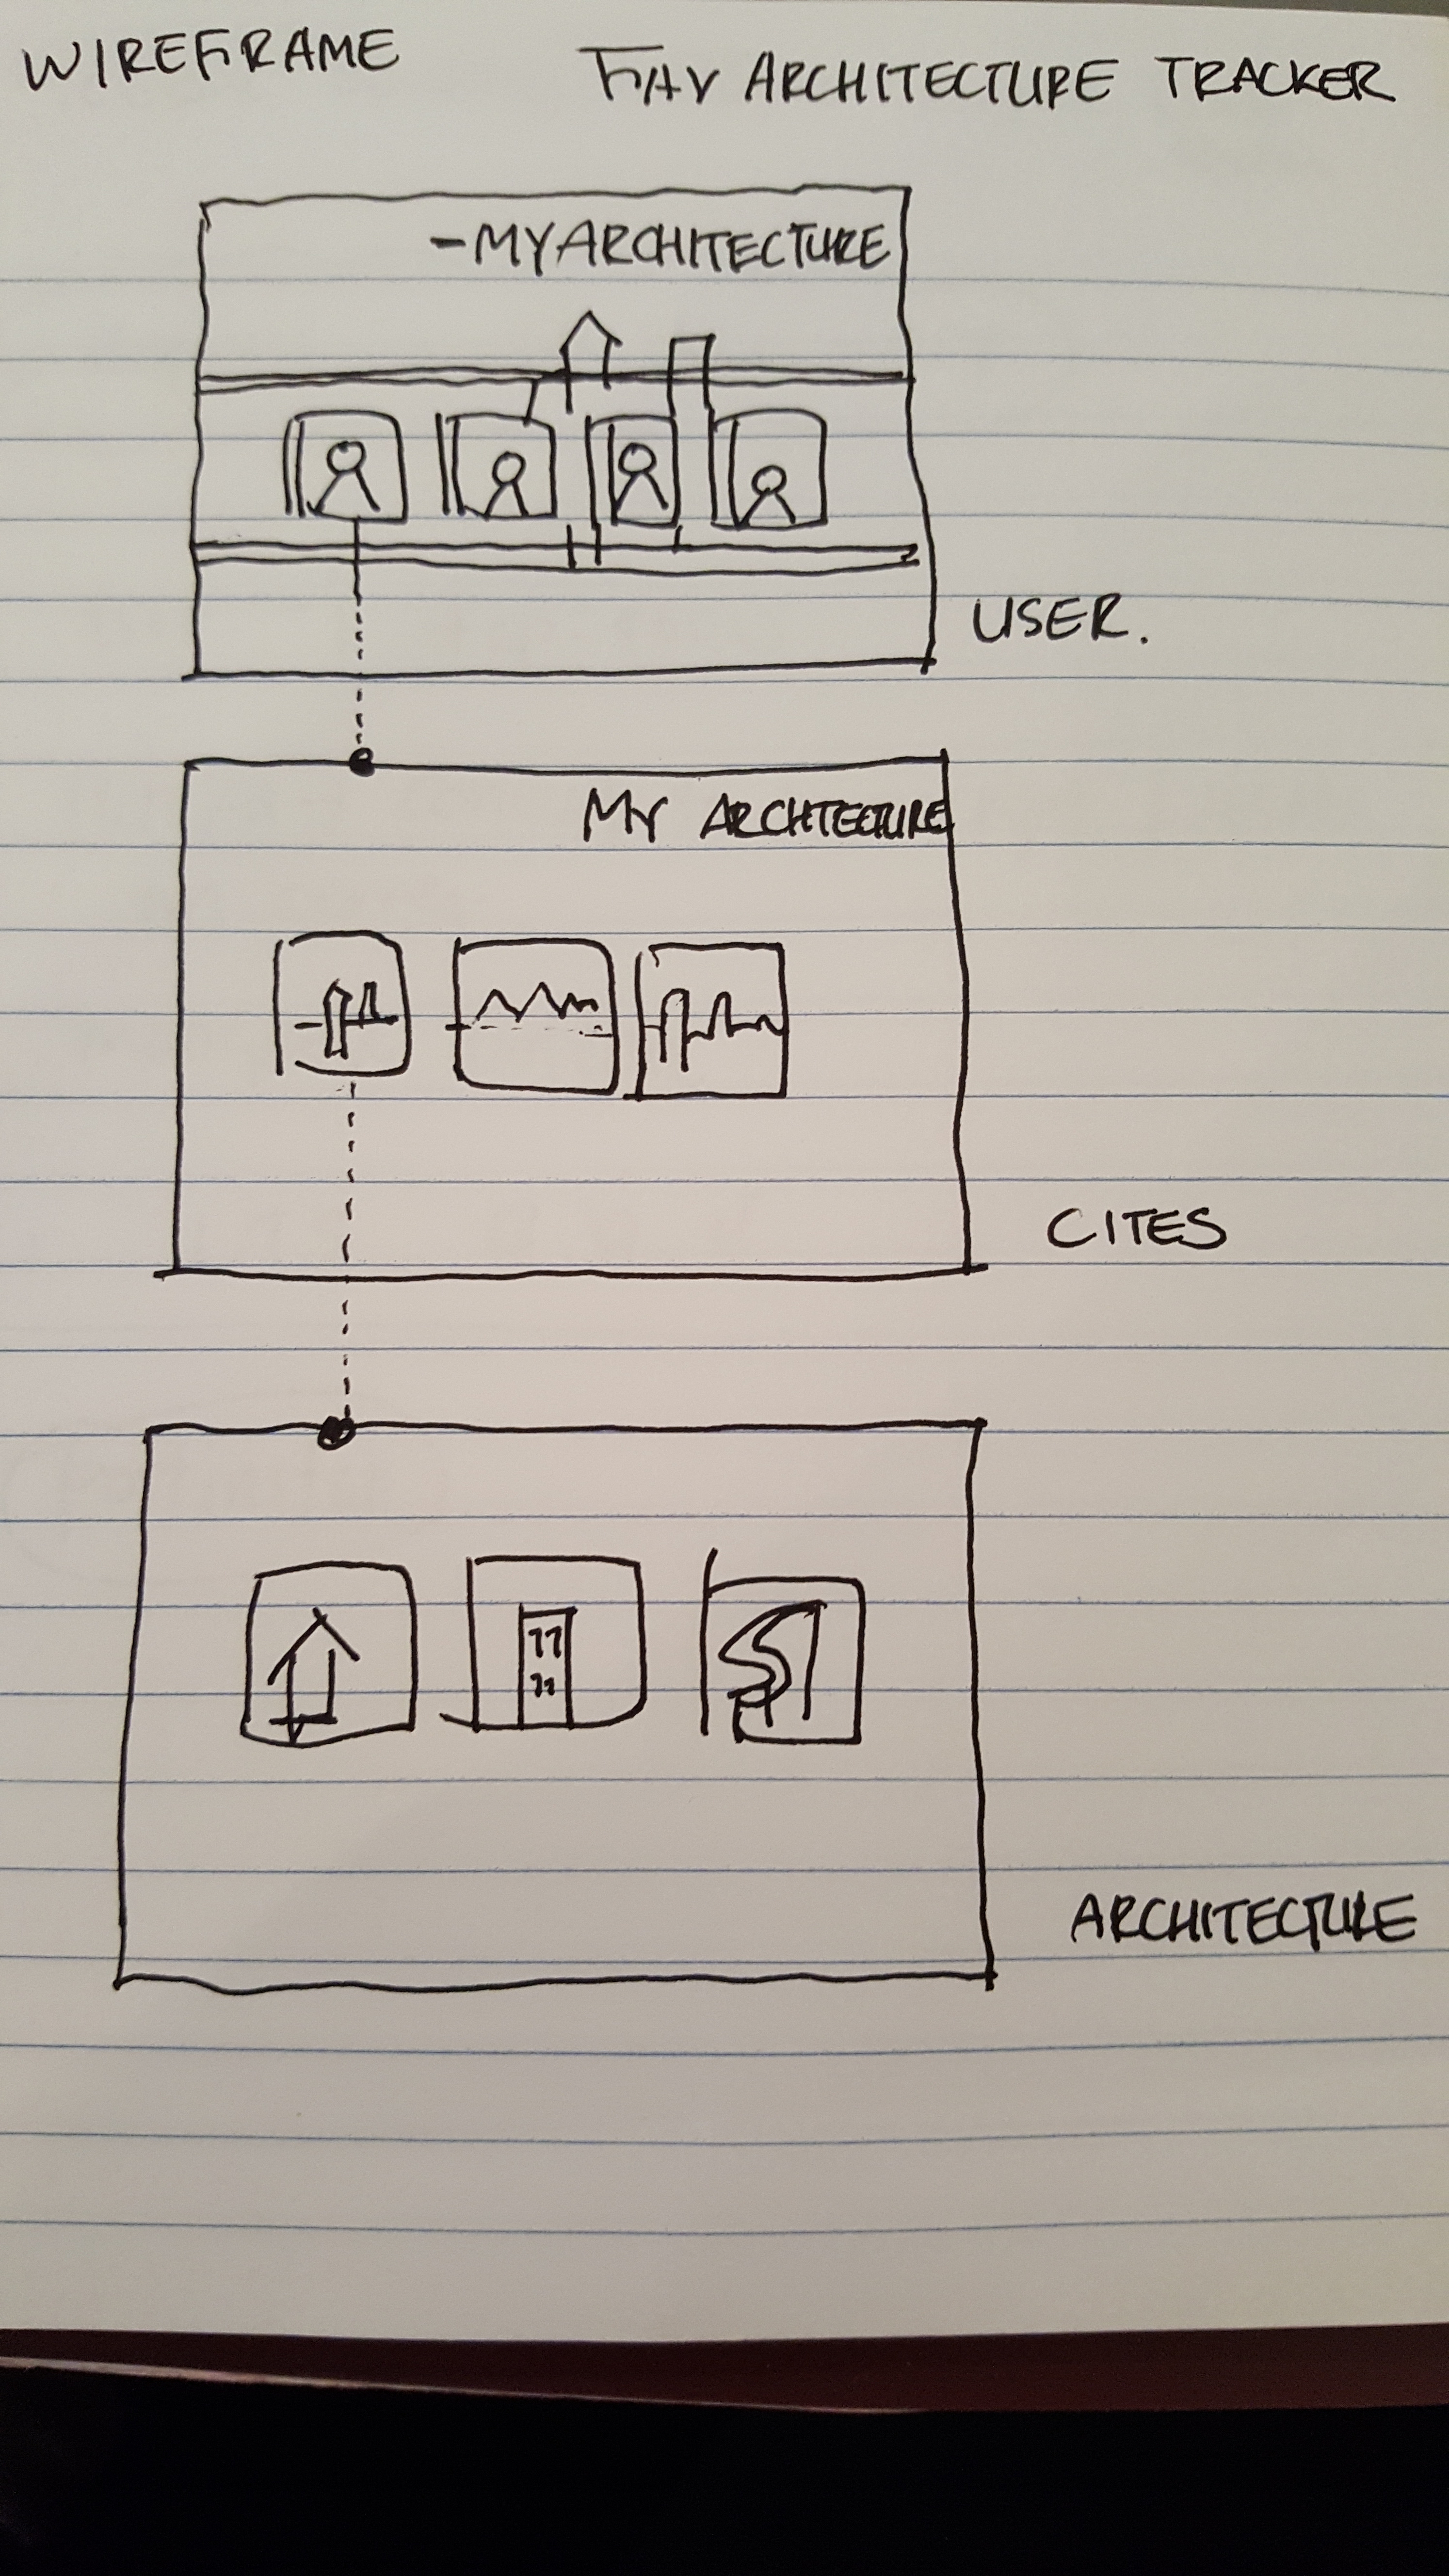 WIREFRAME
FAV ARCHITECTURE TRACKER
-MY ARCHITECTURE
USER.
MY ARCHTECTURE
CITES
ARCHITECTURE